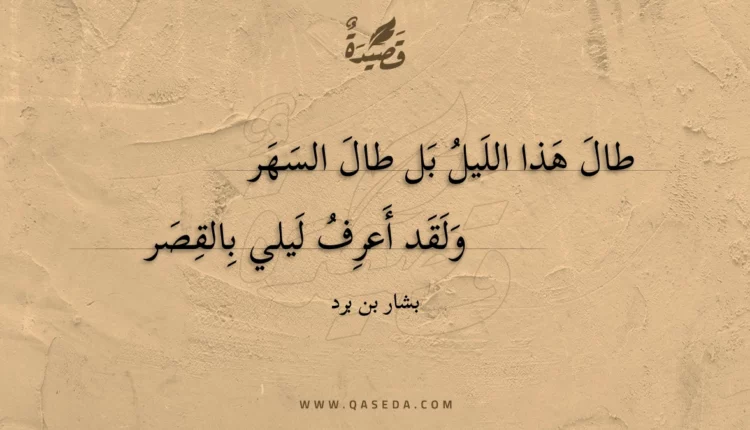 قَصِيْدَةٌ
طالَ هَذا اللَيلُ بَل طالَ السَهَر
وَلَقَد أَعرِفُ لَيلي بِالقِصَر
بشار بن برد
WWW.QASEDA.COM